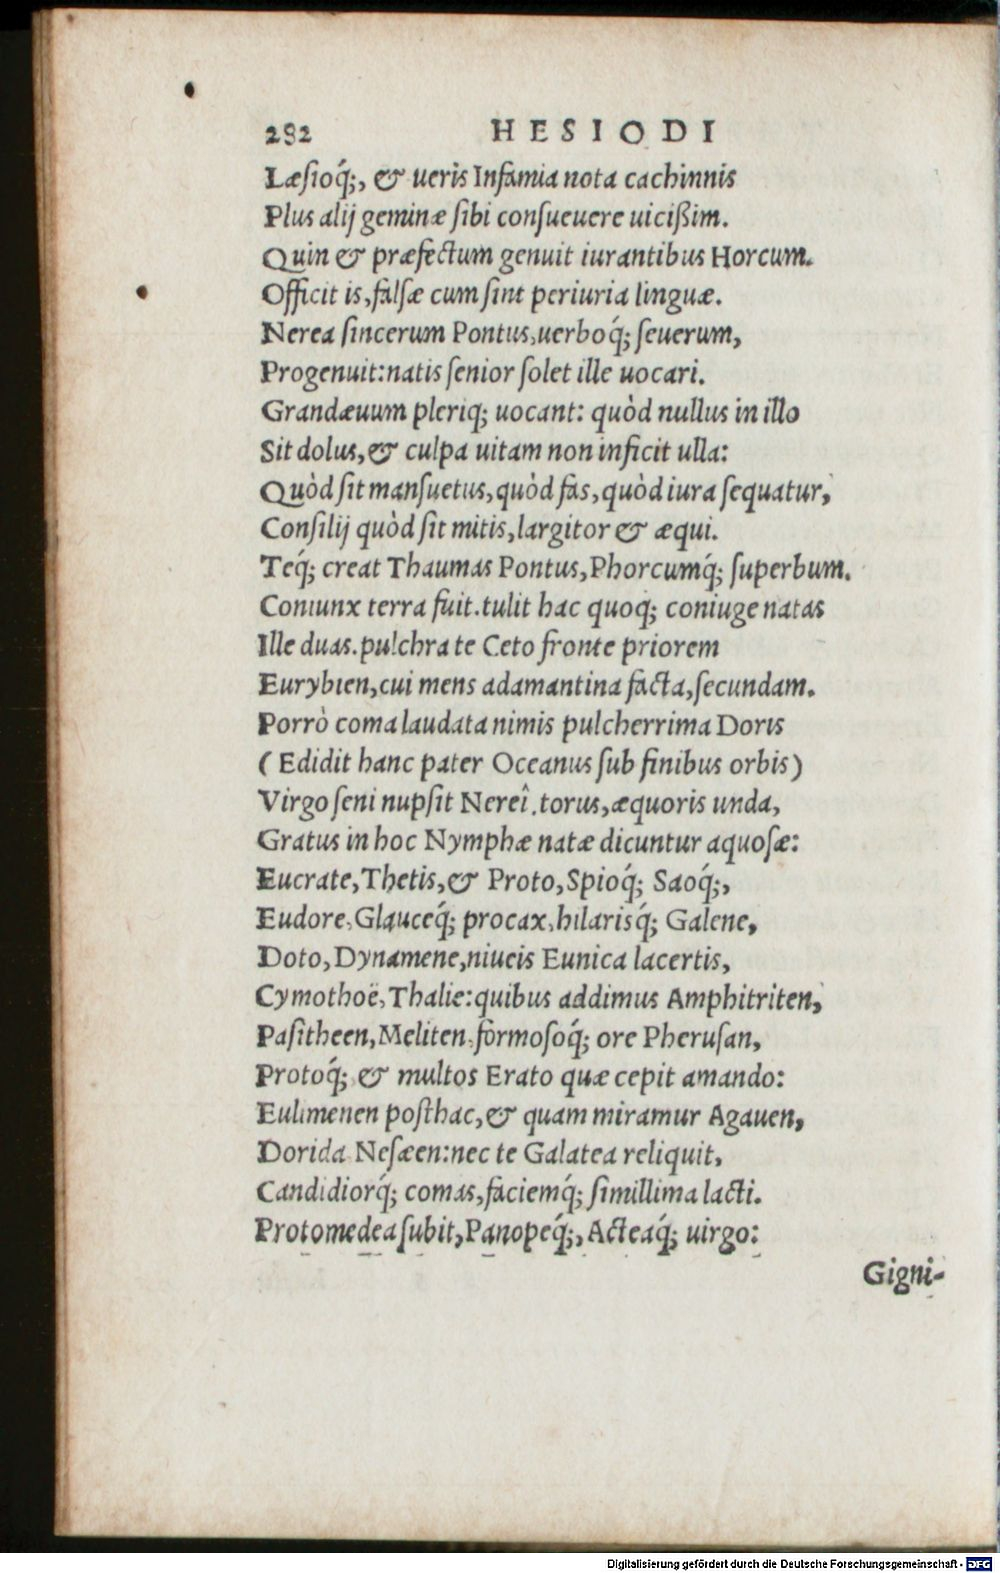 282 HESIODI
Læſioq́;, & ueris Infamia nota cachinnis
Plus alij geminæ ſibi conſueuere uicißim.
Quin & præfectum genuit iurantibus Horcum.
Officit is, falſæ cum ſint periuria linguæ.
Nerea ſincerum Pontus, uerboq́; ſeuerum,
Progenuit: natis ſenior ſolet ille uocari.
Grandæuum pleriq; uocant: quòd nullus in illo
Sit dolus, & culpa uitam non inficit ulla:
Quòd ſit manſuetus, quòd fas, quòd iura ſequatur,
Conſilij quòd ſit mitis, largitor & æqui.
Teq́; creat Thaumas Pontus, Phorcumq́; ſuperbum.
Coniunx terra fuit. tulit hac quoq; coniuge natas
Ille duas. pulchra te Ceto fronte priorem
Eurybien, cui mens adamantina facta, ſecundam.
Porrò coma laudata nimis pulcherrima Doris
(Edidit hanc pater Oceanus ſub finibus orbis)
Virgo ſeni nupſit Nereî. torus, æquoris unda,
Gratus in hoc Nymphæ natæ dicuntur aquoſæ:
Eucrate, Thetis, & Proto, Spioq́; Saoq́;,
Eudore, Glauceq́; procax, hilarisq́; Galene,
Doto, Dynamene, niueis Eunica lacertis,
Cymothoë, Thalie: quibus addimus Amphitriten,
Paſitheen, Meliten, formoſoq́; ore Pheruſan,
Protoq́; & multos Erato quæ cepit amando:
Eulimenen poſthac, & quam miramur Agauen,
Dorida Neſæen: nec te Galatea reliquit,
Candidiorq́; comas, faciemq́; ſimillima lacti.
Protomedea ſubit, Panopeq́;, Acteaq́; uirgo:
Gigni-
Digitalisierung gefördert durch die Deutsche Forschungsgemeinschaft - DFG